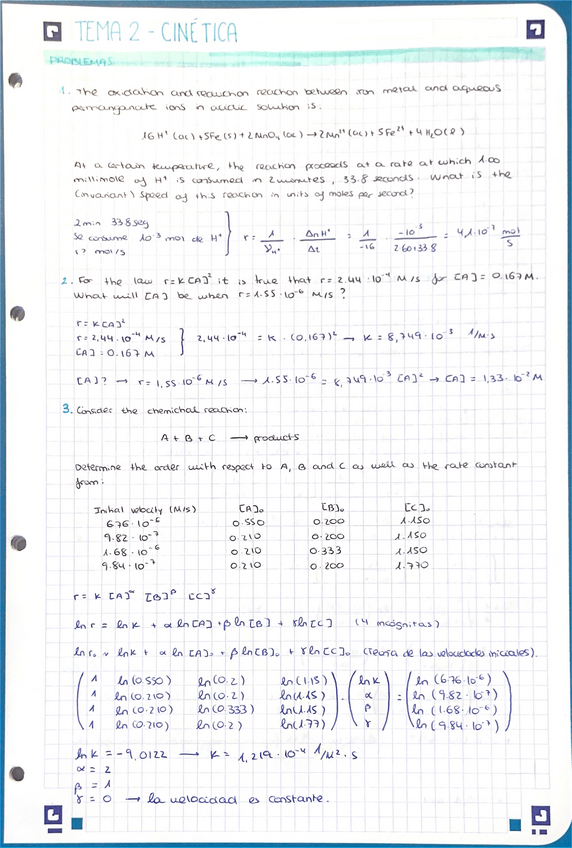 TEMA 2 - CINÉTICA
PROBLEMAS
1. The oxidation and reduction reaction between iron metal and aqueous
permanganate ions in acidic solution is.
16H⁺(ac) + 5Fe(s) + 2MnO₄(ac) → 2Mn²⁺(ac) + 5Fe²⁺ + 4H₂O(l)
At a certain temperature, the reaction proceeds at a rate at which 1.00
millimole of H⁺ is consumed in 2 minutes, 33.8 seconds. What is the
(invariant) speed of this reaction in units of moles per second?
2min 33.8seg
Se consume 10⁻³ mol de H⁺
¿? mol/s
r = 1/νH⁺ · ΔnH⁺/Δt = 1/-16 · -10⁻³/2·60+33.8 = 4,1·10⁻⁷ mol/s
2. For the law r=K[A]² it is true that r = 2.44·10⁻⁴ M/s for [A] = 0.167M.
What will [A] be when r=1.55·10⁻⁶ M/s?
r = K[A]²
r = 2,44·10⁻⁴ M/s
[A] = 0.167 M
2,44·10⁻⁴ = K·(0,167)² → K = 8,749·10⁻³ 1/M·s
[A]? → r = 1,55·10⁻⁶ M/s → 1.55·10⁻⁶ = 8,749·10⁻³ [A]² → [A] = 1,33·10⁻² M
3. Consider the chemichal reaction:
A + B + C → products
Determine the order with respect to A, B and C as well as the rate constant
from:
Initial velocity (M/s) [A]₀ [B]₀ [C]₀
6.76·10⁻⁶ 0.550 0.200 1.150
9.82·10⁻⁷ 0.210 0.200 1.150
1.68·10⁻⁶ 0.210 0.333 1.150
9.84·10⁻⁷ 0.210 0.200 1.770
r = K [A]^α [B]^β [C]^γ
ln r = ln K + α ln[A] + β ln[B] + γ ln[C] (4 incógnitas)
ln r₀ = ln K + α ln[A]₀ + β ln[B]₀ + γ ln[C]₀ (Teoría de las velocidades iniciales).
1 ln(0.550) ln(0.2) ln(1.15) ln K ln(6.76·10⁻⁶)
1 ln(0.210) ln(0.2) ln(1.15) · α = ln(9.82·10⁻⁷)
1 ln(0.210) ln(0.333) ln(1.15) β ln(1.68·10⁻⁶)
1 ln(0.210) ln(0.2) ln(1.77) γ ln(9.84·10⁻⁷)
ln K = -9,0122 → K = 1,219·10⁻⁴ 1/M²·s
α = 2
β = 1
γ = 0 → la velocidad es constante.